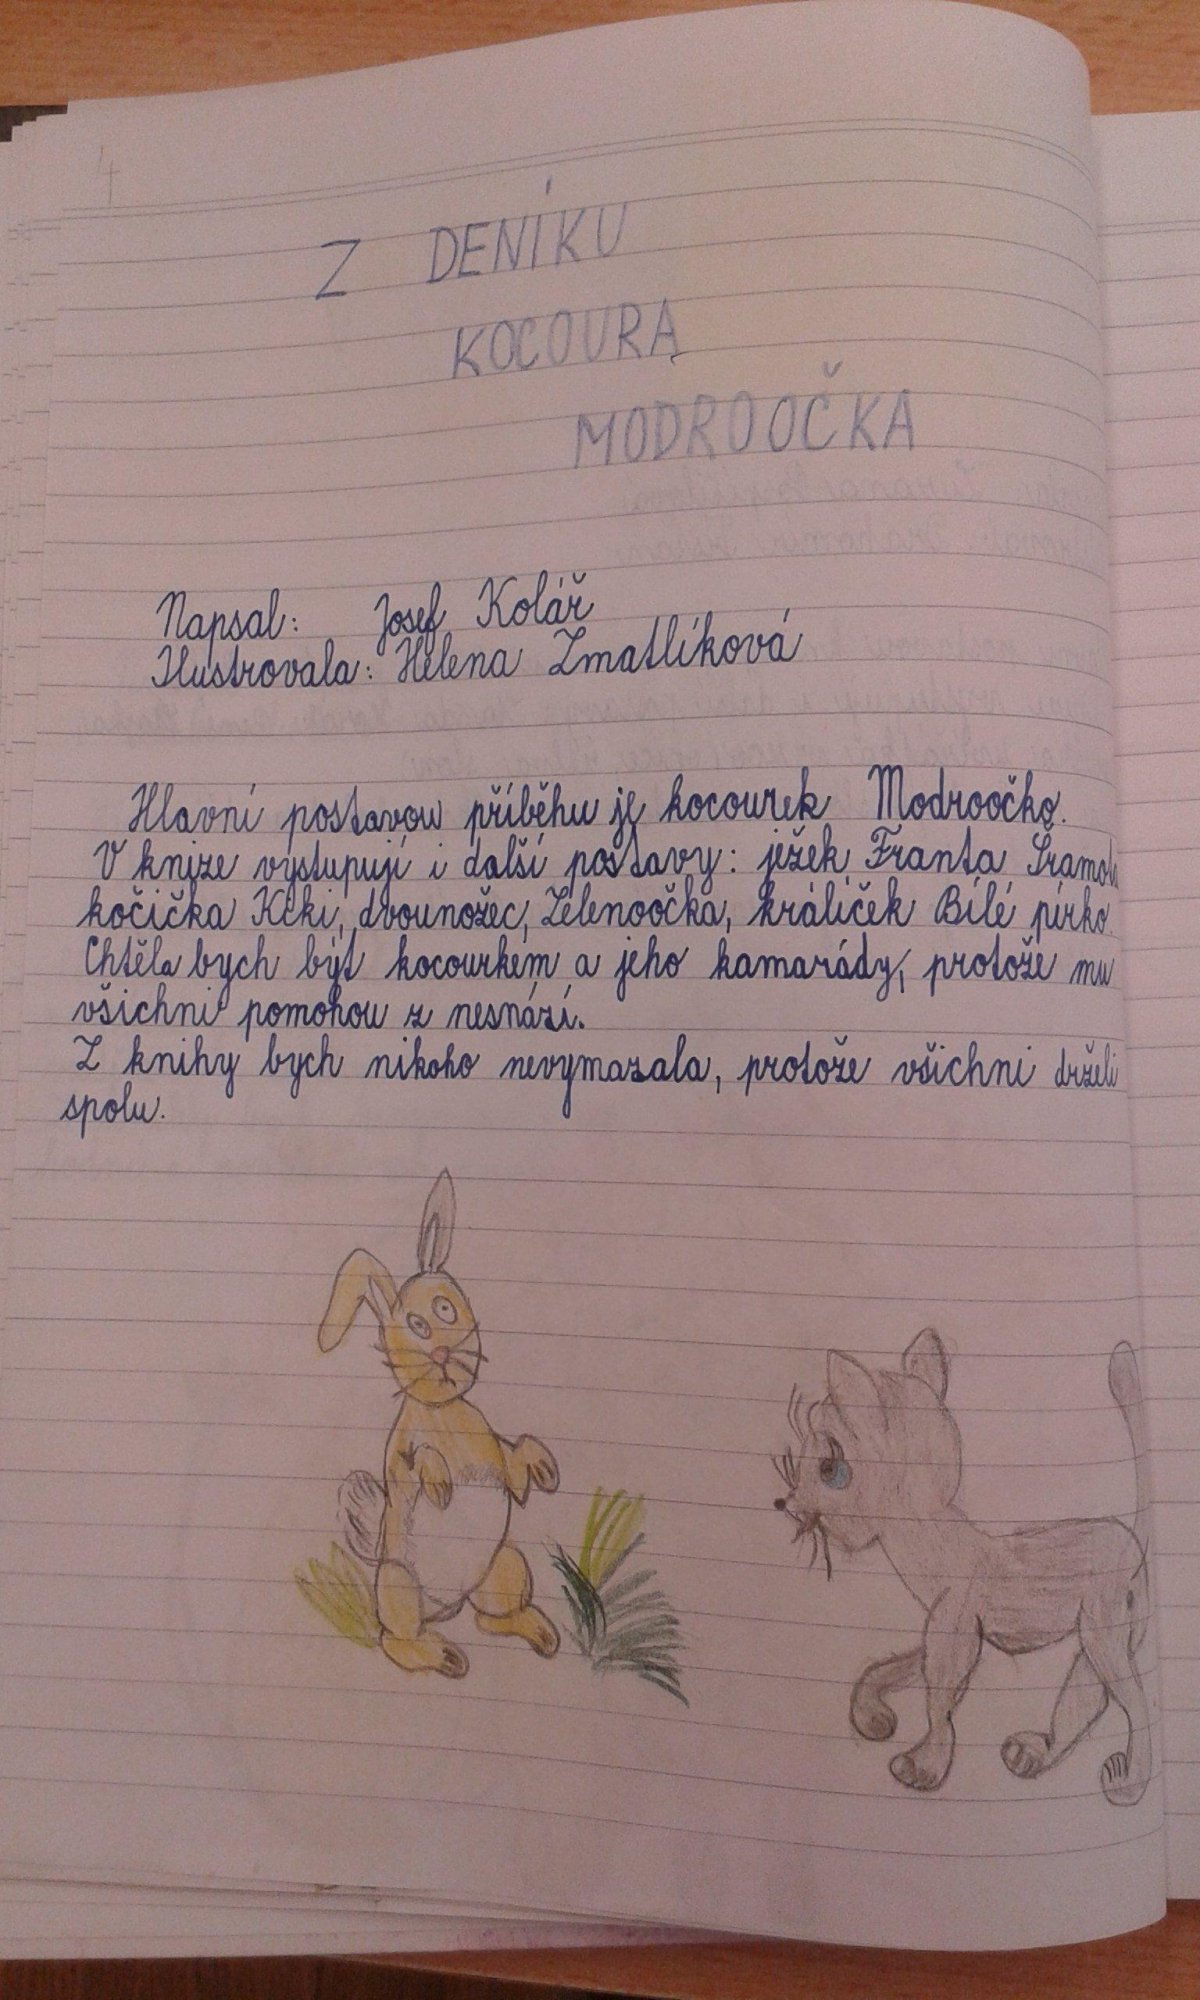 4
Z DENÍKU
KOCOURA
MODROOČKA
Napsal: Josef Kolář
Ilustrovala: Helena Zmatlíková
Hlavní postavou příběhu je kocourek Modroočko.
V knize vystupují i další postavy: ježek Franta Šramota
kočička Kiki, dvounožec, Zelenoočka, králíček Bílé pírko.
Chtěla bych být kocourkem a jeho kamarády, protože mu
všichni pomohou z nesnází.
Z knihy bych nikoho nevymazala, protože všichni drželi
spolu.